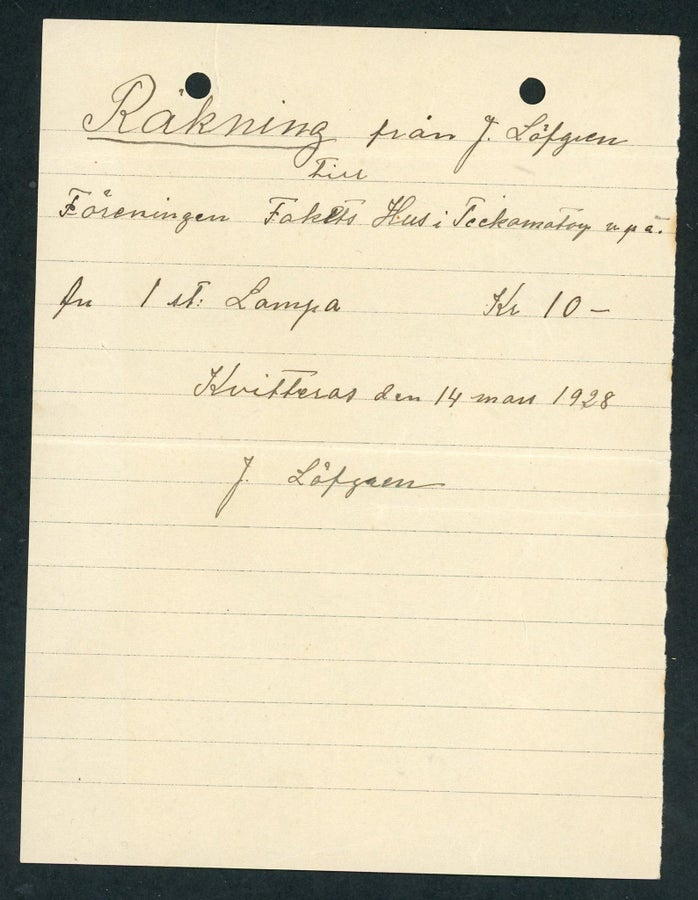 Räkning från J. Löfgren
till
Föreningen Folkets Hus i Teckomatorp u.p.a.
för 1 st: Lampa Kr 10 –
Kvitteras den 14 mars 1928
J. Löfgren